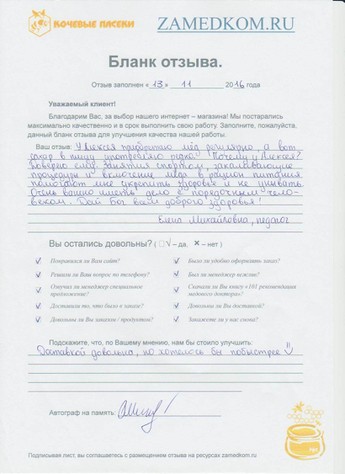 КОЧЕВЫЕ ПАСЕКИ
ZAMEDKOM.RU
Бланк отзыва.
Отзыв заполнен « 13 » 11 2016 года
Уважаемый клиент!
Благодарим Вас, за выбор нашего интернет – магазина! Мы постарались
максимально качественно и в срок выполнить свою работу. Заполните, пожалуйста,
данный бланк отзыва для улучшения качества нашей работы.
Ваш отзыв: У Алексея приобретаю мёд регулярно, а вот
сахар в пищу употребляю редко. Почему у Алексея?
Доверяю ему. Занятия спортом, закаливающие
процедуры и включение мёда в рацион питания
помогают мне укрепить здоровье и не унывать.
Очень важно иметь дело с порядочным чело-
веком. Дай Бог всем доброго здоровья!
Елена Михайловна, педагог
Вы остались довольны? ( √ – да, × – нет )
Понравился ли Вам сайт?
Было ли удобно оформлять заказ?
Решили ли Ваш вопрос по телефону?
Был ли менеджер вежлив?
Озвучил ли менеджер специальное
предложение?
Скачали ли Вы книгу «101 рекомендация
медового доктора»?
Доставили то, что было в заказе?
Довольны ли Вы доставкой?
Довольны ли Вы заказом / продуктом?
Закажете ли у нас снова?
Подскажите, что, по Вашему мнению, нам бы стоило улучшить:
Доставкой довольна, но хотелось бы побыстрее
Автограф на память
Подписывая лист, вы соглашаетесь с размещением отзыва на ресурсах zamedkom.ru